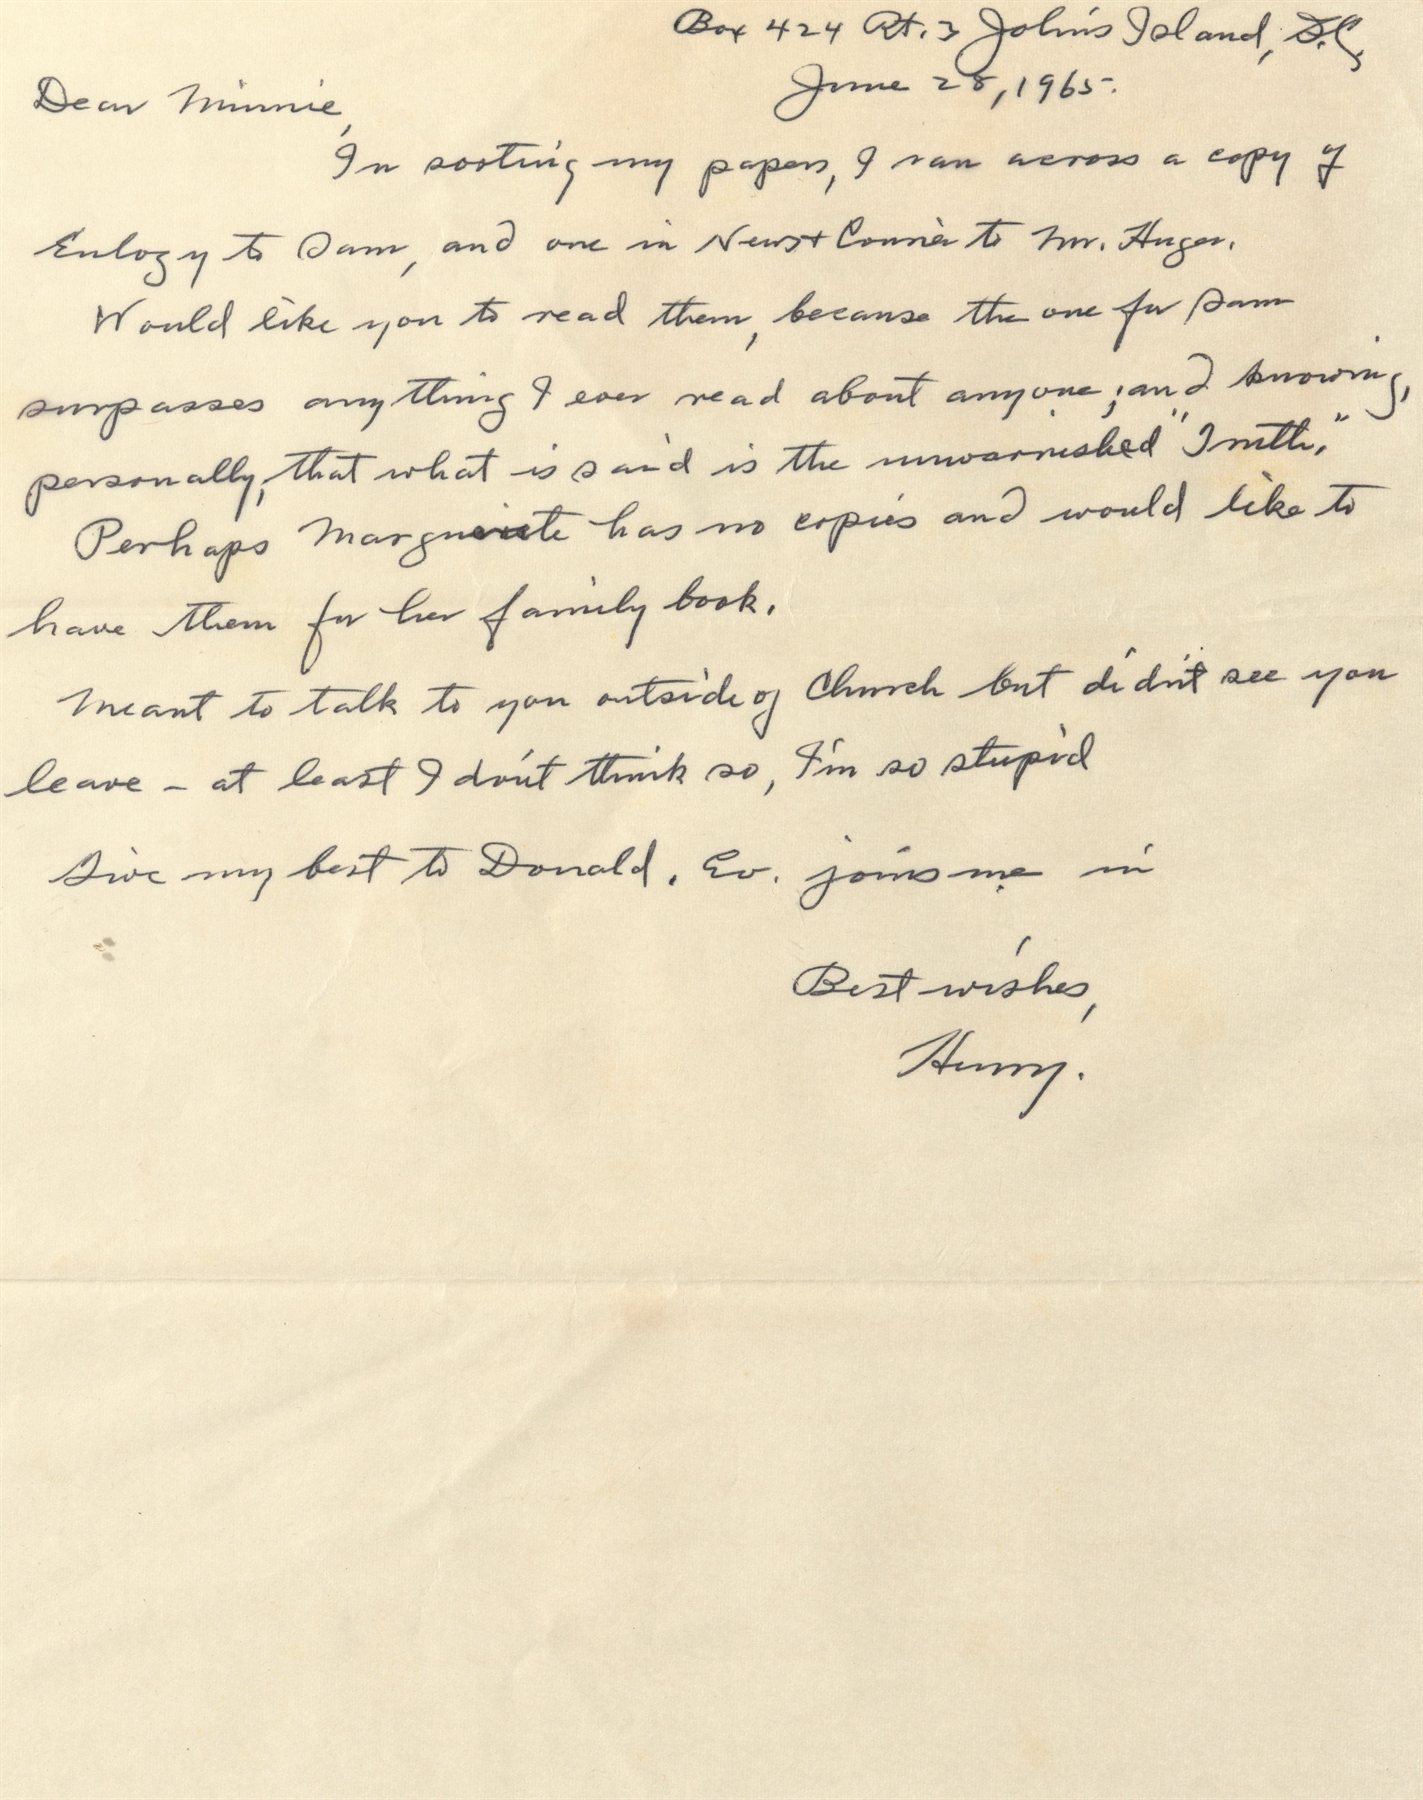 Box 424 Rt. 3 John's Island, S.C.
June 28, 1965.
Dear Minnie,
In sorting my papers, I ran across a copy of
Eulogy to Sam, and one in News & Courier to Mr. Huger.
Would like you to read them, because the one for Sam
surpasses anything I ever read about anyone; and knowing,
personally, that what is said is the unvarnished "Truth."
Perhaps Marguerite has no copies and would like to
have them for her family book.
Meant to talk to you outside of Church but didn't see you
leave - at least I don't think so, I'm so stupid
Give my best to Donald. Ev. joins me in
Best wishes,
Henry.